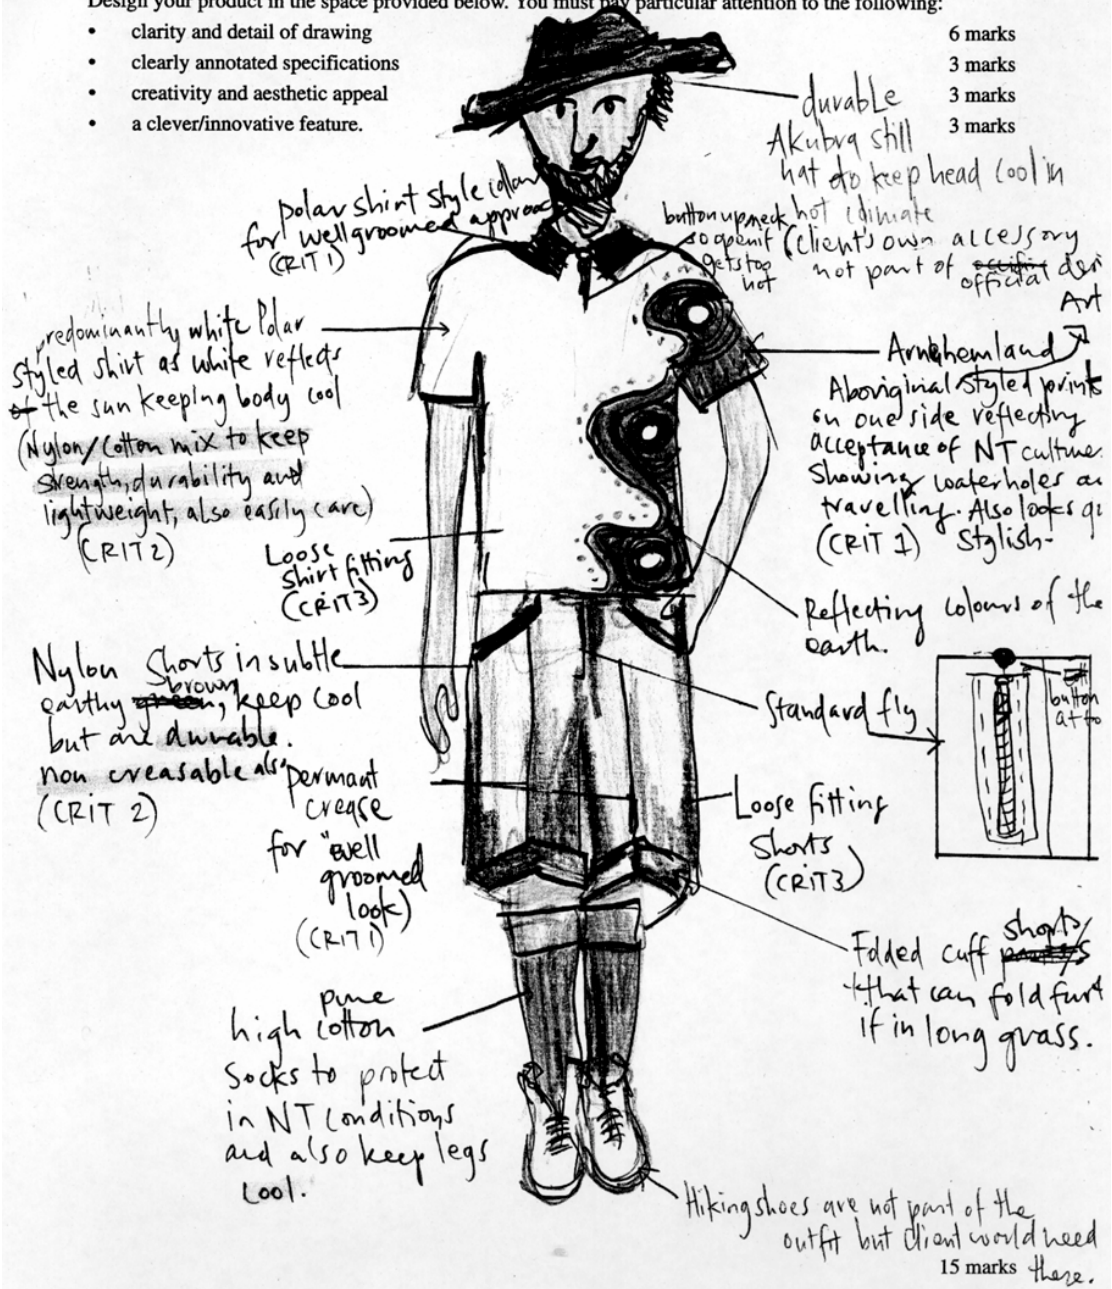 Design your product in the space provided below. You must pay particular attention to the following:
• clarity and detail of drawing 6 marks
• clearly annotated specifications 3 marks
• creativity and aesthetic appeal 3 marks
• a clever/innovative feature. 3 marks
durable
Akubra still
hat to keep head cool in
hot climate
(client's own accessory
not part of
official
Art
polar shirt style collar
for well groomed approac
(CRIT 1)
button up neck
so open if
gets too
hot
predominantly white Polar
styled shirt as white reflects
the sun keeping body cool
(Nylon/Cotton mix to keep
strength, durability and
lightweight, also easily care)
(CRIT 2)
Arnghemland
Aboriginal styled prints
on one side reflecting
acceptance of NT culture.
Showing waterholes
travelling. Also looks
(CRIT 1) Stylish-
Loose
shirt fitting
(CRIT3)
Reflecting colours of the
earth.
Nylon Shorts in subtle
earthy brown, keep cool
but are durable.
non creasable also
(CRIT 2)
Standard fly
button
permant
crease
for "well
groomed
look)
(CRIT1)
Loose fitting
Shorts
(CRIT3)
Folded cuff shorts
that can fold furt
if in long grass.
high pure cotton
Socks to protect
in NT conditions
and also keep legs
cool.
Hiking shoes are not part of the
outfit but client would need
15 marks these.